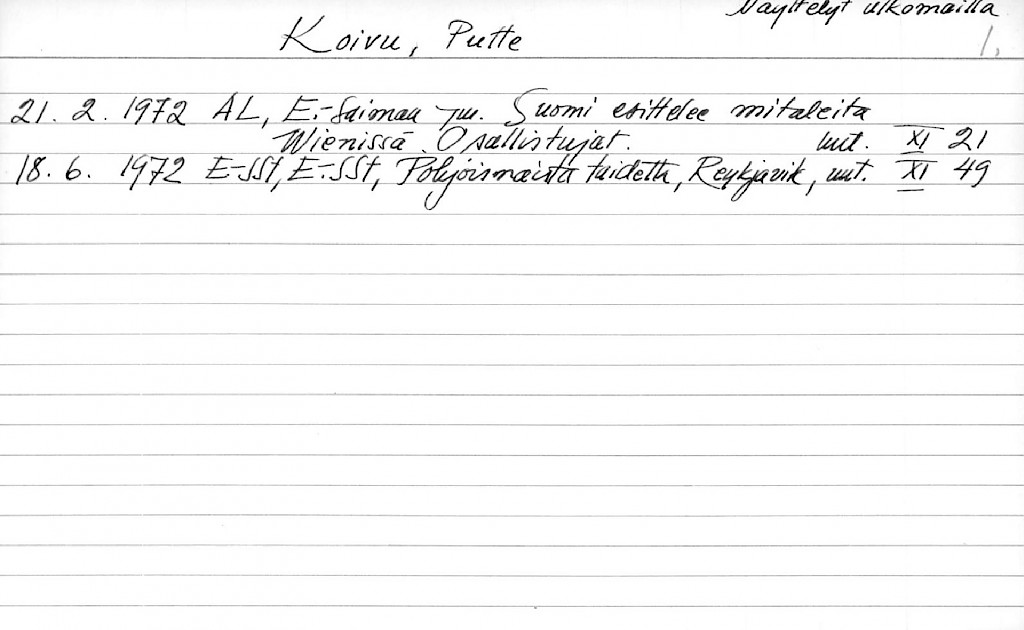 Näyttelyt ulkomailla
Koivu, Putte
1.
21. 2. 1972 AL, E.-Saiman ym. Suomi esittelee mitaleita
Wienissä. Osallistujat. uut. XI 21
18. 6. 1972 E-SSt, E.-SSt, Pohjoismaista taidetta, Reykjavik, uut. XI 49